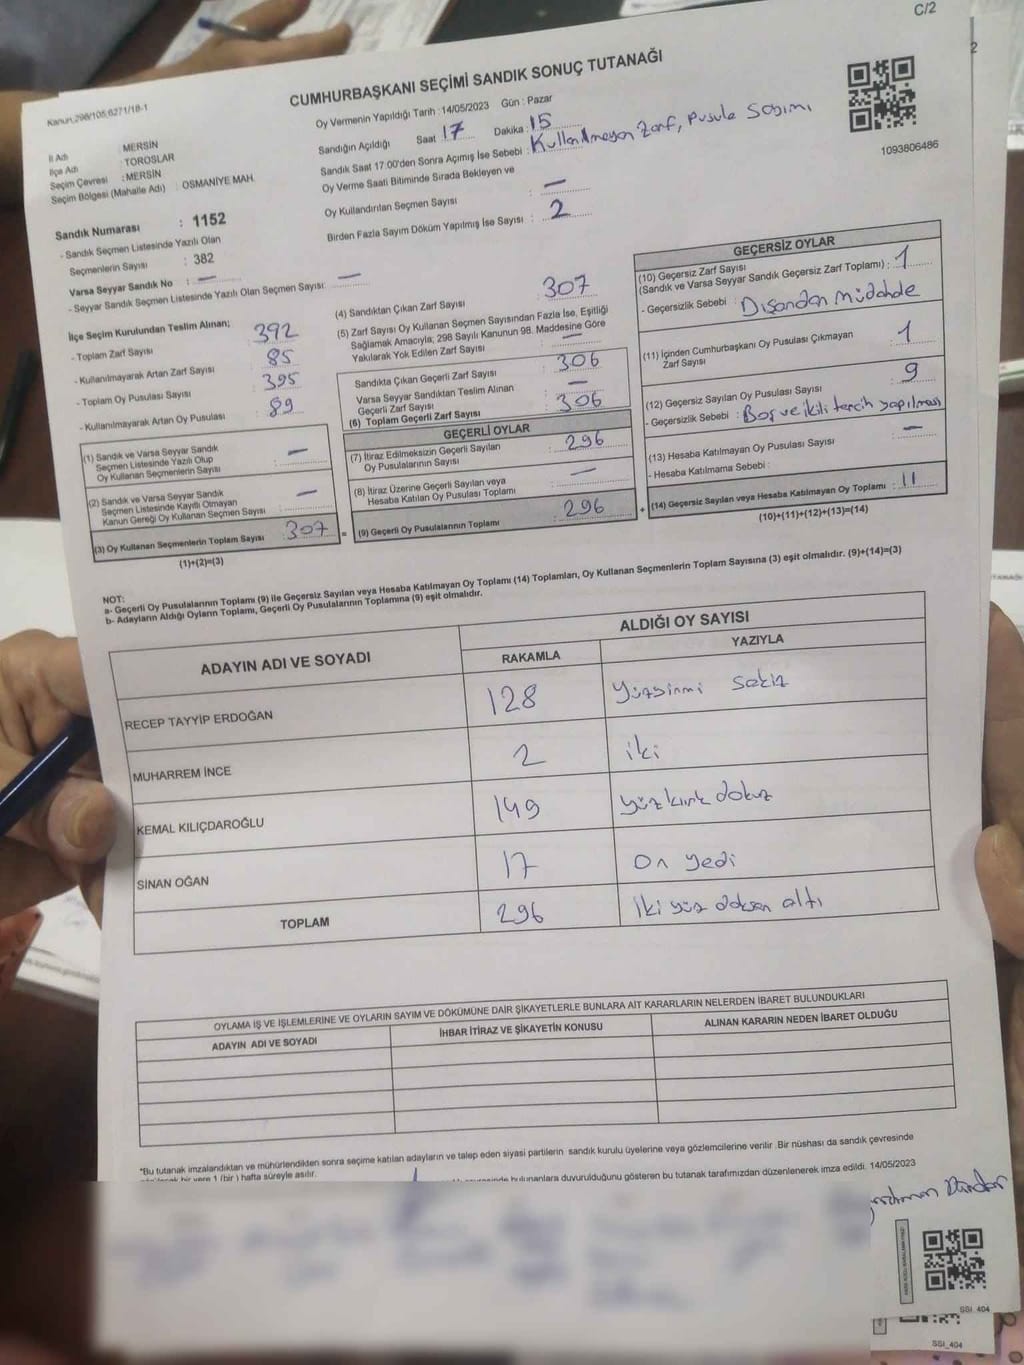 C/2
Kanun,298/105;6271/18-1
CUMHURBAŞKANI SEÇİMİ SANDIK SONUÇ TUTANAĞI
İl Adı : MERSİN
İlçe Adı : TOROSLAR
Seçim Çevresi : MERSİN
Seçim Bölgesi (Mahalle Adı) : OSMANİYE MAH.
Sandık Numarası : 1152
- Sandık Seçmen Listesinde Yazılı Olan
Seçmenlerin Sayısı : 382
Varsa Seyyar Sandık No : —
- Seyyar Sandık Seçmen Listesinde Yazılı Olan Seçmen Sayısı: —
Oy Vermenin Yapıldığı Tarih :14/05/2023 Gün : Pazar
Sandığın Açıldığı Saat 17 Dakika : 15
Sandık Saat 17:00'den Sonra Açımış İse Sebebi : Kullanılmayan Zarf, Pusula Sayımı
Oy Verme Saati Bitiminde Sırada Bekleyen ve
Oy Kullandırılan Seçmen Sayısı : —
Birden Fazla Sayım Döküm Yapılmış İse Sayısı : 2
1093806486
İlçe Seçim Kurulundan Teslim Alınan;
- Toplam Zarf Sayısı : 392
- Kullanılmayarak Artan Zarf Sayısı : 85
- Toplam Oy Pusulası Sayısı : 395
- Kullanılmayarak Artan Oy Pusulası : 89
(1) Sandık ve Varsa Seyyar Sandık
Seçmen Listesinde Yazılı Olup
Oy Kullanan Seçmenlerin Sayısı : —
(2) Sandık ve Varsa Seyyar Sandık
Seçmen Listesinde Kayıtlı Olmayan
Kanun Gereği Oy Kullanan Seçmen Sayısı : —
(3) Oy Kullanan Seçmenlerin Toplam Sayısı : 307 =
(1)+(2)=(3)
(4) Sandıktan Çıkan Zarf Sayısı : 307
(5) Zarf Sayısı Oy Kullanan Seçmen Sayısından Fazla İse, Eşitliği
Sağlamak Amacıyla; 298 Sayılı Kanunun 98. Maddesine Göre
Yakılarak Yok Edilen Zarf Sayısı : —
Sandıkta Çıkan Geçerli Zarf Sayısı : 306
Varsa Seyyar Sandıktan Teslim Alınan
Geçerli Zarf Sayısı : —
(6) Toplam Geçerli Zarf Sayısı : 306
GEÇERLİ OYLAR
(7) İtiraz Edilmeksizin Geçerli Sayılan
Oy Pusulalarının Sayısı : 296
(8) İtiraz Üzerine Geçerli Sayılan veya
Hesaba Katılan Oy Pusulası Toplamı : —
(9) Geçerli Oy Pusulalarının Toplamı : 296 +
GEÇERSİZ OYLAR
(10) Geçersiz Zarf Sayısı
(Sandık ve Varsa Seyyar Sandık Geçersiz Zarf Toplamı) : 1
- Geçersizlik Sebebi : Dışarıdan müdahale
(11) İçinden Cumhurbaşkanı Oy Pusulası Çıkmayan
Zarf Sayısı : 1
(12) Geçersiz Sayılan Oy Pusulası Sayısı : 9
- Geçersizlik Sebebi : Boş ve ikili tercih yapılması
(13) Hesaba Katılmayan Oy Pusulası Sayısı : —
- Hesaba Katılmama Sebebi :
(14) Geçersiz Sayılan veya Hesaba Katılmayan Oy Toplamı : 11
(10)+(11)+(12)+(13)=(14)
NOT:
a- Geçerli Oy Pusulalarının Toplamı (9) ile Geçersiz Sayılan veya Hesaba Katılmayan Oy Toplamı (14) Toplamları, Oy Kullanan Seçmenlerin Toplam Sayısına (3) eşit olmalıdır. (9)+(14)=(3)
b- Adayların Aldığı Oyların Toplamı, Geçerli Oy Pusulalarının Toplamına (9) eşit olmalıdır.
ADAYIN ADI VE SOYADI
ALDIĞI OY SAYISI
RAKAMLA YAZIYLA
RECEP TAYYİP ERDOĞAN 128 yüzyirmi sekiz
MUHARREM İNCE 2 iki
KEMAL KILIÇDAROĞLU 149 yüz kırk dokuz
SİNAN OĞAN 17 On yedi
TOPLAM 296 iki yüz doksan altı
OYLAMA İŞ VE İŞLEMLERİNE VE OYLARIN SAYIM VE DÖKÜMÜNE DAİR ŞİKAYETLERLE BUNLARA AİT KARARLARIN NELERDEN İBARET BULUNDUKLARI
ADAYIN ADI VE SOYADI İHBAR İTİRAZ VE ŞİKAYETİN KONUSU ALINAN KARARIN NEDEN İBARET OLDUĞU
*Bu tutanak imzalandıktan ve mühürlendikten sonra seçime katılan adayların ve talep eden siyasi partilerin sandık kurulu üyelerine veya gözlemcilerine verilir .Bir nüshası da sandık çevresinde
bir yere 1 (bir ) hafta süreyle asılır.
bulunanlara duyurulduğunu gösteren bu tutanak tarafımızdan düzenlenerek imza edildi. 14/05/2023
SSI_404
SSI_404